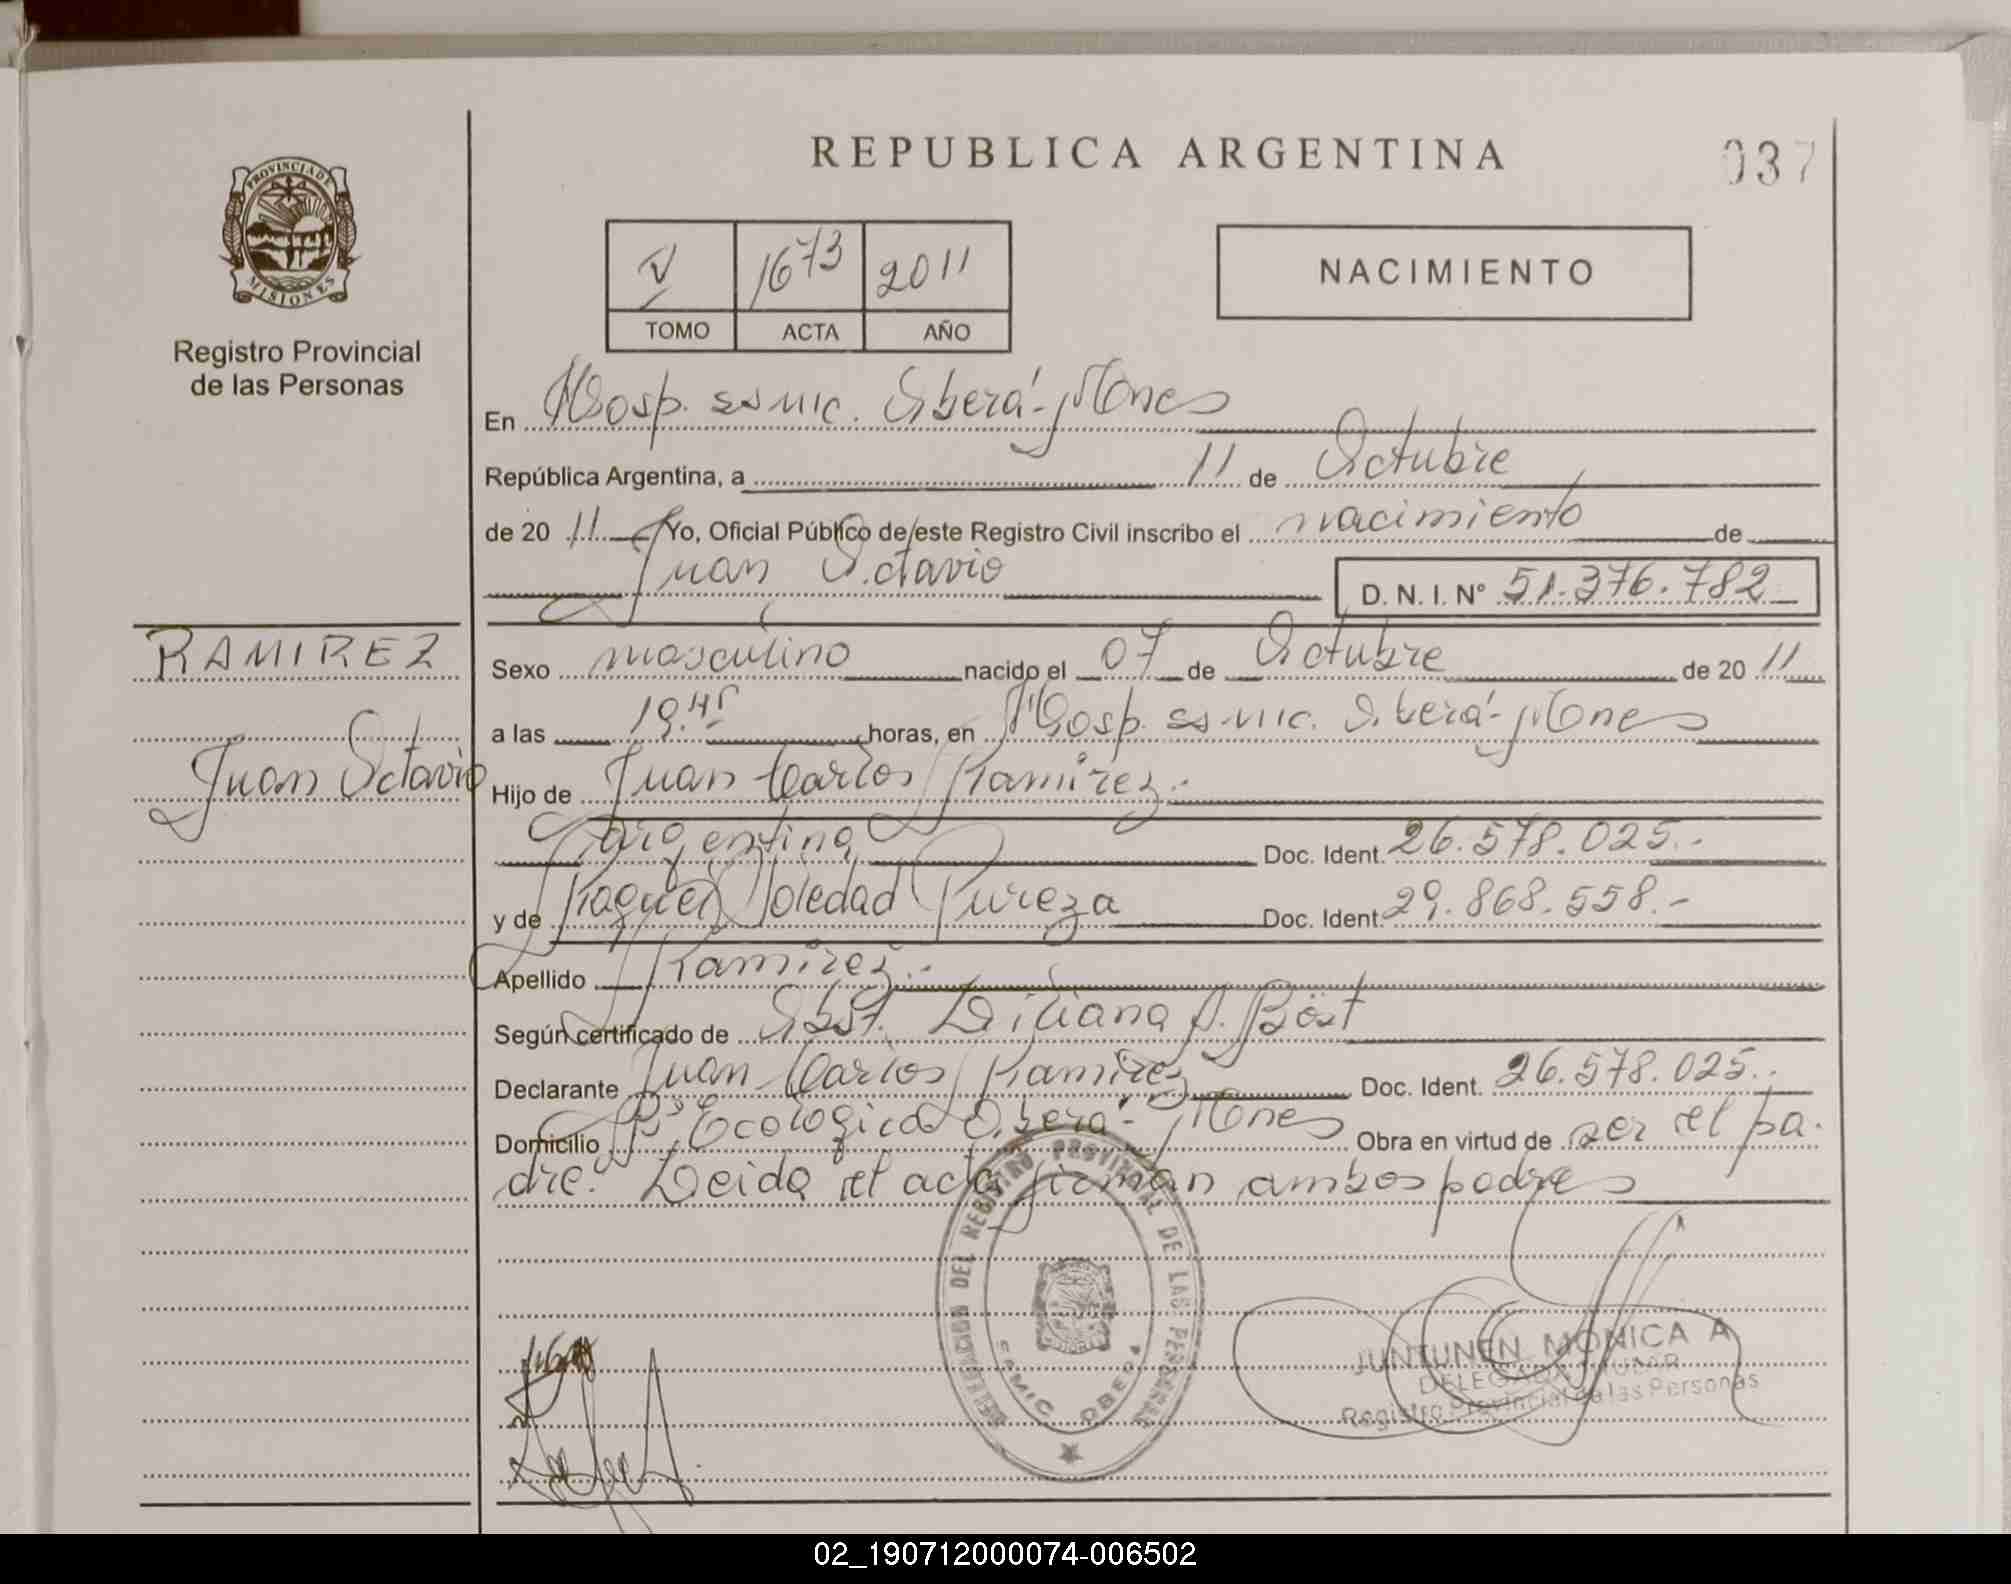 REPUBLICA ARGENTINA
037
PROVINCIA DE
MISIONES
Registro Provincial
de las Personas
V 1673 2011
TOMO ACTA AÑO
NACIMIENTO
En Hosp. SSMIC. Oberá - Mnes
República Argentina, a 11 de Octubre
de 2011 Yo, Oficial Público de este Registro Civil inscribo el nacimiento de
Juan Octavio
D. N. I. Nº 51.376.782
RAMIREZ
Juan Octavio
Sexo masculino nacido el 07 de Octubre de 2011
a las 19.45 horas, en Hosp. SSMIC. Oberá - Mnes
Hijo de Juan Carlos Ramirez.-
argentina Doc. Ident. 26.578.025.-
y de Raquel Soledad Pureza Doc. Ident. 29.868.558.-
Apellido Ramirez.-
Según certificado de Obst. Liliana A. Böst
Declarante Juan Carlos Ramirez Doc. Ident. 26.578.025..
Domicilio Bº Ecologico Oberá - Mnes Obra en virtud de ser el pa-
dre. Leida el acta firman ambos padres
DELEGACION DEL REGISTRO PROVINCIAL DE LAS PERSONAS
OBERA
JUNTUNEN MONICA A
DELEGADA
Registro Provincial de las Personas
02_190712000074-006502